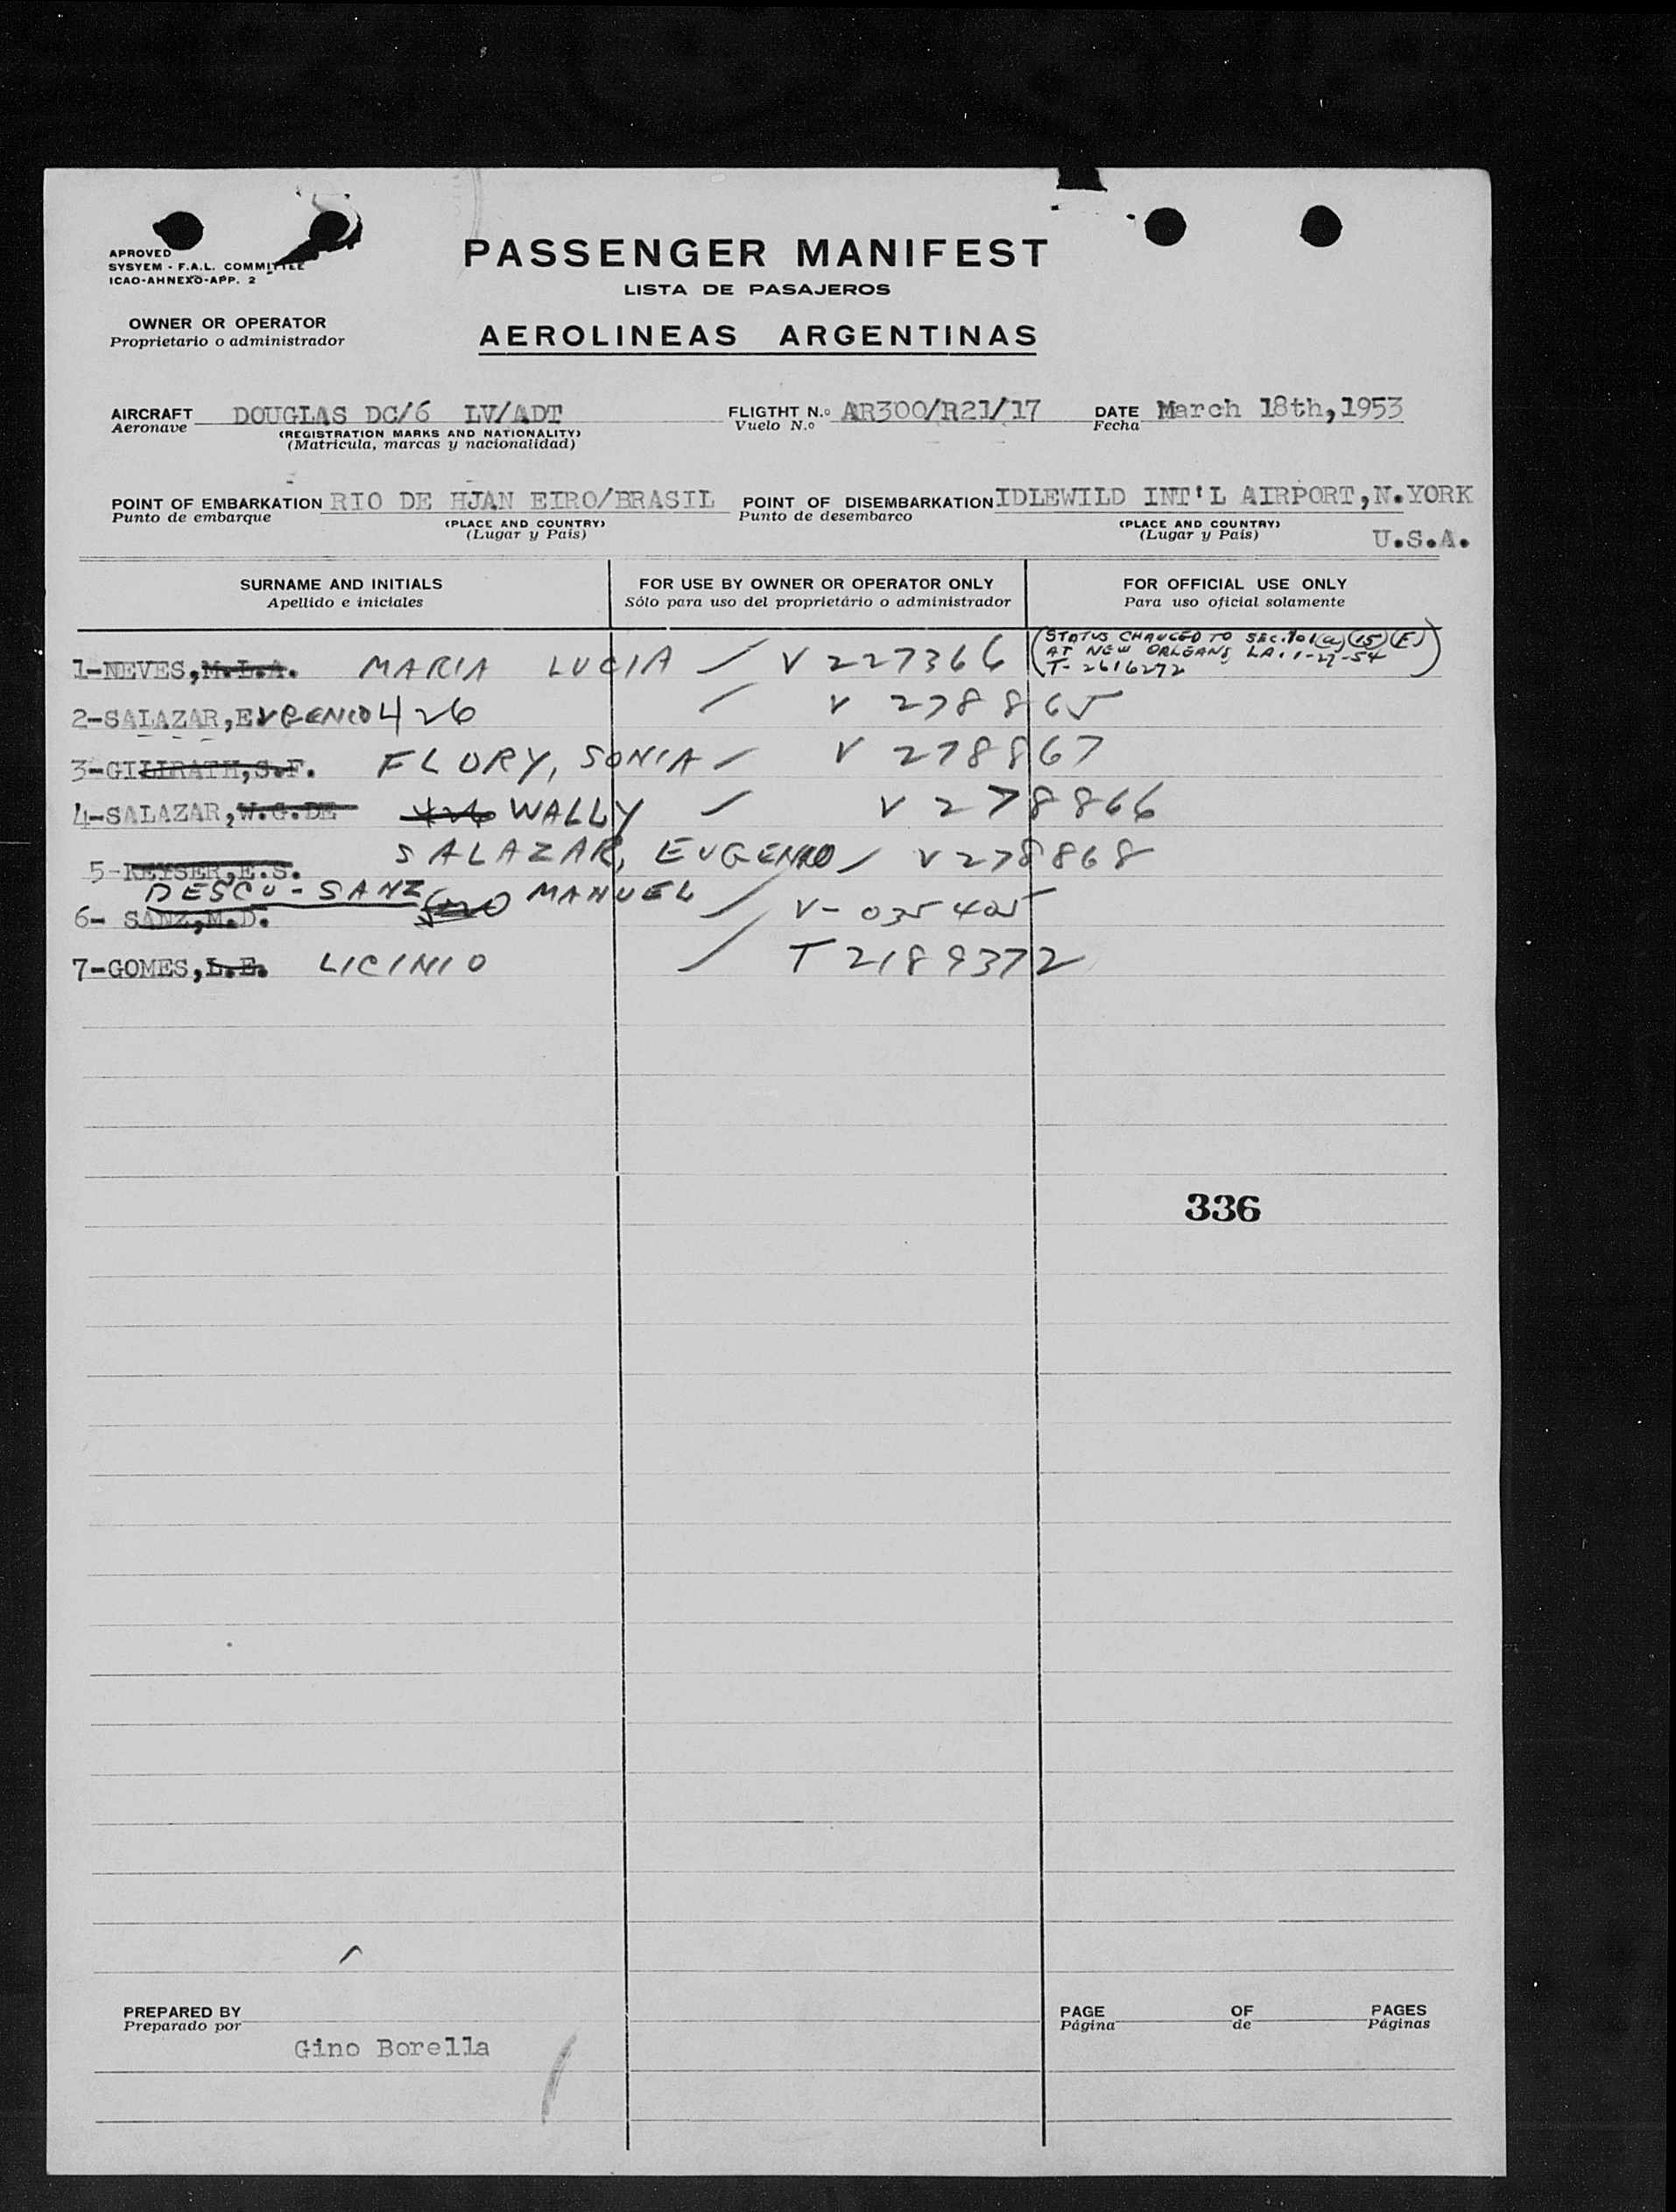 APROVED
SYSYEM - F.A.L. COMMITTEE
ICAO-AHNEXO-APP. 2
PASSENGER MANIFEST
LISTA DE PASAJEROS
OWNER OR OPERATOR
Proprietario o administrador
AEROLINEAS ARGENTINAS
AIRCRAFT DOUGLAS DC/6 LV/ADT FLIGTHT N.o AR300/R21/17 DATE March 18th,1953
Aeronave (REGISTRATION MARKS AND NATIONALITY) Vuelo N.o Fecha
(Matricula, marcas y nacionalidad)
POINT OF EMBARKATION RIO DE HJAN EIRO/BRASIL POINT OF DISEMBARKATION IDLEWILD INT'L AIRPORT,N.YORK
Punto de embarque (PLACE AND COUNTRY) Punto de desembarco (PLACE AND COUNTRY)
(Lugar y Pais) (Lugar y Pais) U.S.A.
SURNAME AND INITIALS FOR USE BY OWNER OR OPERATOR ONLY FOR OFFICIAL USE ONLY
Apellido e iniciales Sólo para uso del proprietário o administrador Para uso oficial solamente
(STATUS CHANGED TO SEC.101(a)(15)(F)
AT NEW ORLEANS, LA. 1-27-54
T-2616272)
1-NEVES,M.L.A. MARIA LUCIA / V 227366
2-SALAZAR,EUGENIO 426 / V 278865
3-GILIRATH,S.F. FLORY, SONIA / V 278867
4-SALAZAR,W.G.DE 426 WALLY / V 278866
SALAZAR, EUGENIO / V 278868
5-KEYSER,E.S.
DESCO-SANZ MANUEL
6- SANZ,M.D. / V-035405
7-GOMES,L.E. LICINIO / T 2189372
336
PREPARED BY PAGE OF PAGES
Preparado por Página de Páginas
Gino Borella